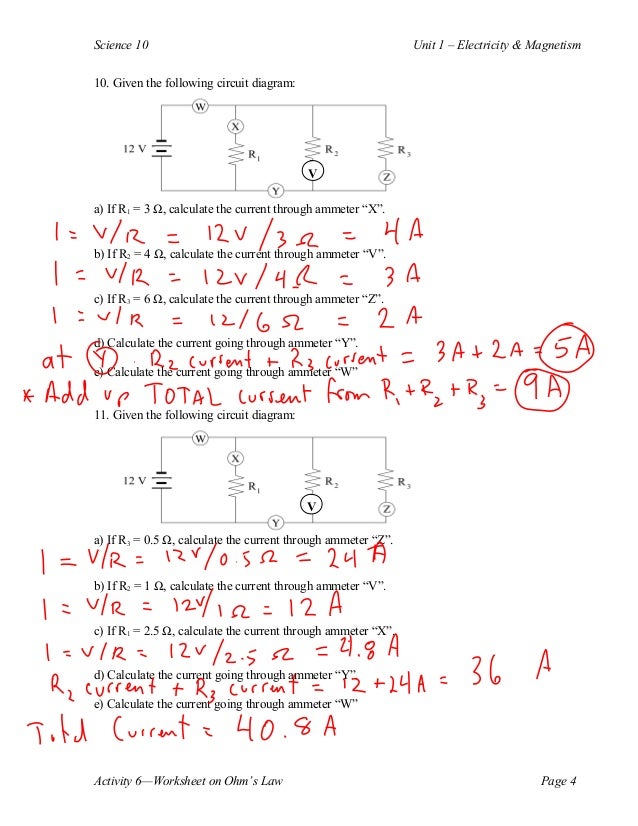 Science 10 Unit 1 – Electricity & Magnetism
10. Given the following circuit diagram:
W
X
12 V R1 R2 R3
V Z
Y
a) If R1 = 3 Ω, calculate the current through ammeter “X”.
I = V/R = 12V/3Ω = 4A
b) If R2 = 4 Ω, calculate the current through ammeter “V”.
I = V/R = 12V/4Ω = 3A
c) If R3 = 6 Ω, calculate the current through ammeter “Z”.
I = V/R = 12/6Ω = 2A
d) Calculate the current going through ammeter “Y”.
at Y. R2 current + R3 current = 3A + 2A = 5A
e) Calculate the current going through ammeter “W”
* Add up TOTAL current from R1 + R2 + R3 = 9A
11. Given the following circuit diagram:
W
X
12 V R1 R2 R3
V Z
Y
a) If R3 = 0.5 Ω, calculate the current through ammeter “Z”.
I = V/R = 12V/0.5Ω = 24A
b) If R2 = 1 Ω, calculate the current through ammeter “V”.
I = V/R = 12V/1Ω = 12A
c) If R1 = 2.5 Ω, calculate the current through ammeter “X”
I = V/R = 12V/2.5Ω = 4.8A
d) Calculate the current going through ammeter “Y”
R2 current + R3 current = 12 + 24A = 36 A
e) Calculate the current going through ammeter “W”
Total Current = 40.8A
Activity 6—Worksheet on Ohm’s Law Page 4